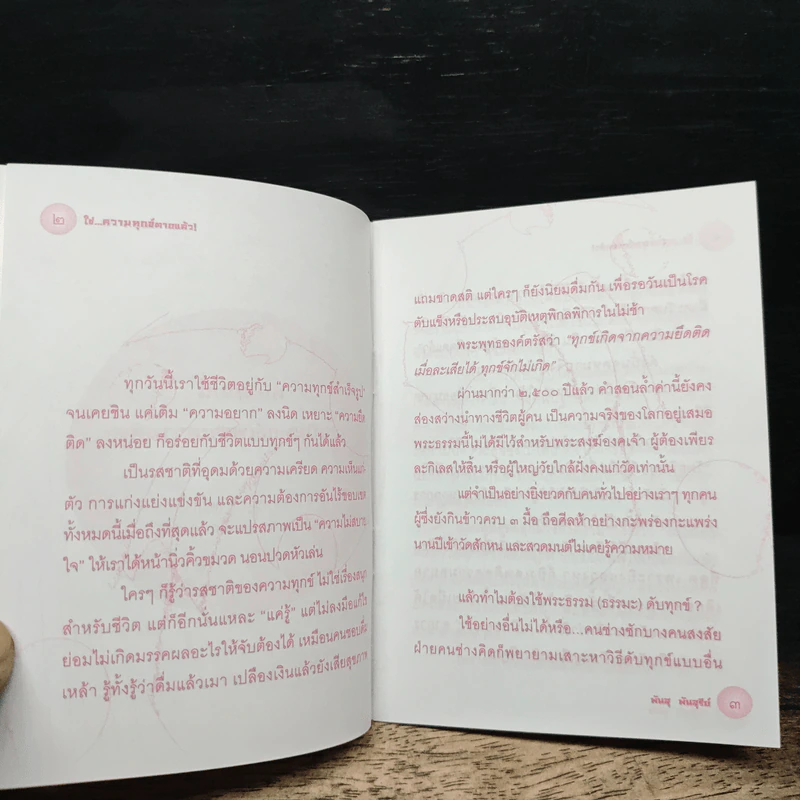 ๒
ใช่...ความทุกข์ตายแล้ว!
ทุกวันนี้เราใช้ชีวิตอยู่กับ “ความทุกข์สำเร็จรูป”
จนเคยชิน แค่เติม “ความอยาก” ลงนิด เหยาะ “ความยึด
ติด” ลงหน่อย ก็อร่อยกับชีวิตแบบทุกข์ๆ กันได้แล้ว
เป็นรสชาติที่อุดมด้วยความเครียด ความเห็นแก่
ตัว การแก่งแย่งแข่งขัน และความต้องการอันไร้ขอบเขต
ทั้งหมดนี้เมื่อถึงที่สุดแล้ว จะแปรสภาพเป็น “ความไม่สบาย
ใจ” ให้เราได้หน้านิ่วคิ้วขมวด นอนปวดหัวเล่น
ใครๆ ก็รู้ว่ารสชาติของความทุกข์ ไม่ใช่เรื่องสนุก
สำหรับชีวิต แต่ก็อีกนั่นแหละ “แค่รู้” แต่ไม่ลงมือแก้ไข
ย่อมไม่เกิดมรรคผลอะไรให้จับต้องได้ เหมือนคนชอบดื่ม
เหล้า รู้ทั้งรู้ว่าดื่มแล้วเมา เปลืองเงินแล้วยังเสียสุขภาพ
แถมขาดสติ แต่ใครๆ ก็ยังนิยมดื่มกัน เพื่อรอวันเป็นโรค
ตับแข็งหรือประสบอุบัติเหตุพิกลพิการในไม่ช้า
พระพุทธองค์ตรัสว่า “ทุกข์เกิดจากความยึดติด
เมื่อละเสียได้ ทุกข์จักไม่เกิด”
ผ่านมากว่า ๒,๕๐๐ ปีแล้ว คำสอนล้ำค่านี้ยังคง
ส่องสว่างนำทางชีวิตผู้คน เป็นความจริงของโลกอยู่เสมอ
พระธรรมนี้ไม่ได้มีไว้สำหรับพระสงฆ์องคเจ้า ผู้ต้องเพียร
ละกิเลสให้สิ้น หรือผู้ใหญ่วัยใกล้ฝั่งคงแก่วัดเท่านั้น
แต่จำเป็นอย่างยิ่งยวดกับคนทั่วไปอย่างเราๆ ทุกคน
ผู้ซึ่งยังกินข้าวครบ ๓ มื้อ ถือศีลห้าอย่างกะพร่องกะแพร่ง
นานปีเข้าวัดสักหน และสวดมนต์ไม่เคยรู้ความหมาย
แล้วทำไมต้องใช้พระธรรม (ธรรมะ) ดับทุกข์ ?
ใช้อย่างอื่นไม่ได้หรือ...คนช่างซักบางคนสงสัย
ฝ่ายคนช่างคิดก็พยายามเสาะหาวิธีดับทุกข์แบบอื่น
พันสุ พันสุรีย์
๓